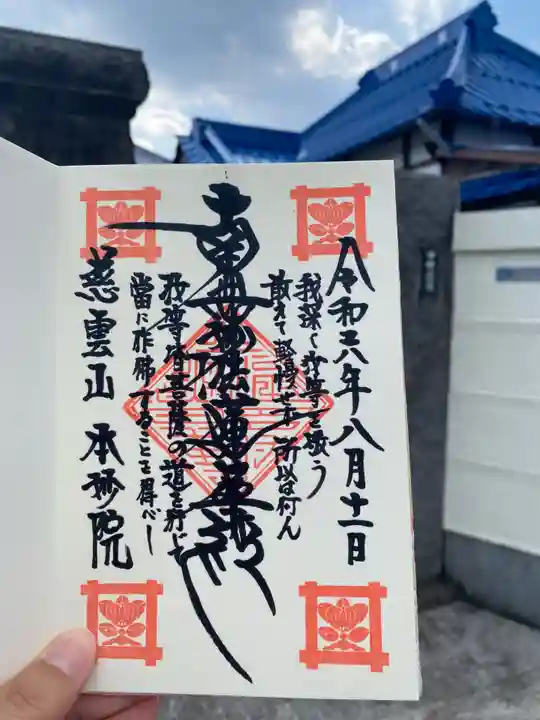 令和六年八月十一日
我深く汝等を敬う
敢えて軽慢せず所以は何ん
南無妙法蓮華経
汝等皆菩薩の道を行じて
当に作佛することを得べし
慈雲山 本妙院